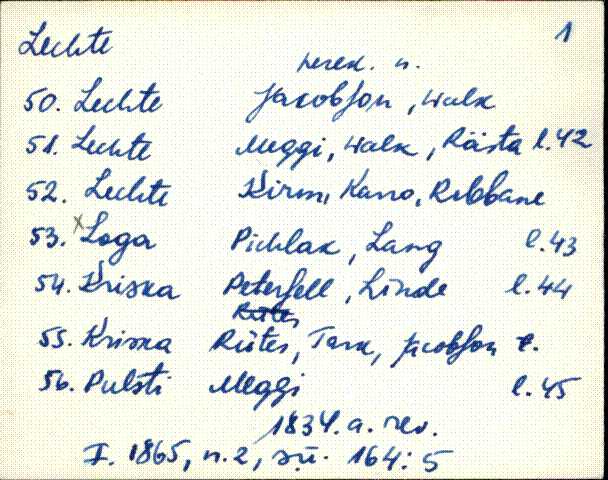 Lechte 1
perek. n.
50. Lechte Jacobson, Walk
51. Lechte Meggi, Walk, Rästa l.42
52. Lechte Kirm, Karro, Rebbane
53. Loga Pichlak, Lang l.43
54. Kriska Petersell, Linde l.44
Rütes
55. Kriska Rütes, Tark, Jacobson l.
56. Pulsti Meggi l.45
1834. a. rev.
I. 1865, n. 2, sü. 164:5